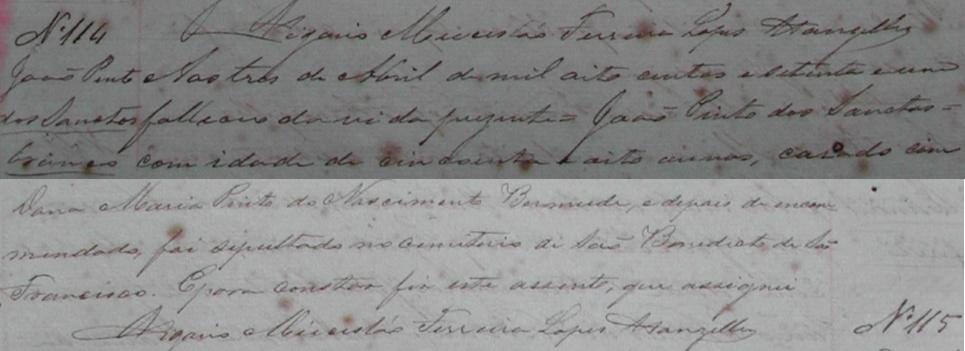 Nº 114 Vigario Miceslás Ferreira Lopes Wangelles
João Pinto Aos tres de Abril de mil oito centos e setenta e um
dos Sanctos falleceu da vida prezente = João Pinto dos Sanctos =
branco com idade de cincoenta e oito annos, casado com
Dona Maria Pinto do Nascimento Bermude, e depois de encom
mendado, foi sepultado no cemiterio de São Benedicto de São
Francisco. E para constar fiz este assento, que assignei
Vigario Miceslás Ferreira Lopes Wangelles Nº 115